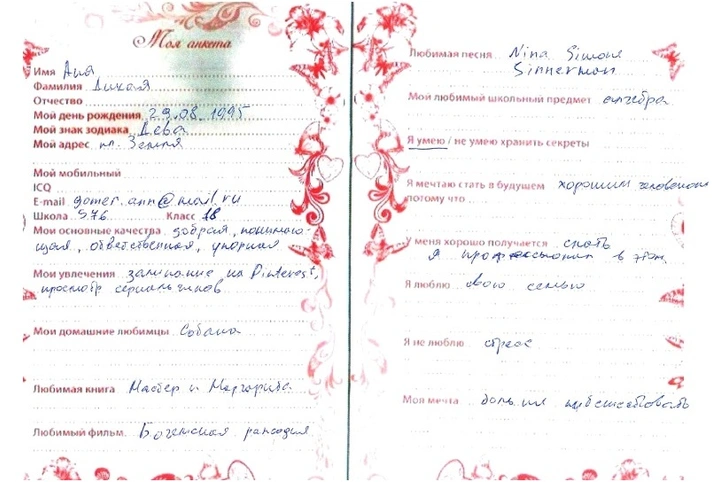 Моя анкета
Имя Аня
Фамилия Дикая
Отчество
Мой день рождения 29.08.1995
Мой знак зодиака Дева
Мой адрес пл. Земля
Мой мобильный
ICQ
E-mail gomer.ann@mail.ru
Школа 576 Класс 18
Мои основные качества добрая, понимаю-
щая, ответственная, упорная
Мои увлечения залипание на Pinterest,
просмотр сериальчиков
Мои домашние любимцы Собака
Любимая книга Мастер и Маргарита
Любимый фильм Богемская рапсодия
Любимая песня Nina Simone
Sinnerman
Мой любимый школьный предмет алгебра
Я умею / не умею хранить секреты
Я мечтаю стать в будущем хорошим человеком
потому что
У меня хорошо получается спать
Я профессионал в этом
Я люблю свою семью
Я не люблю стресс
Моя мечта больше путешествовать